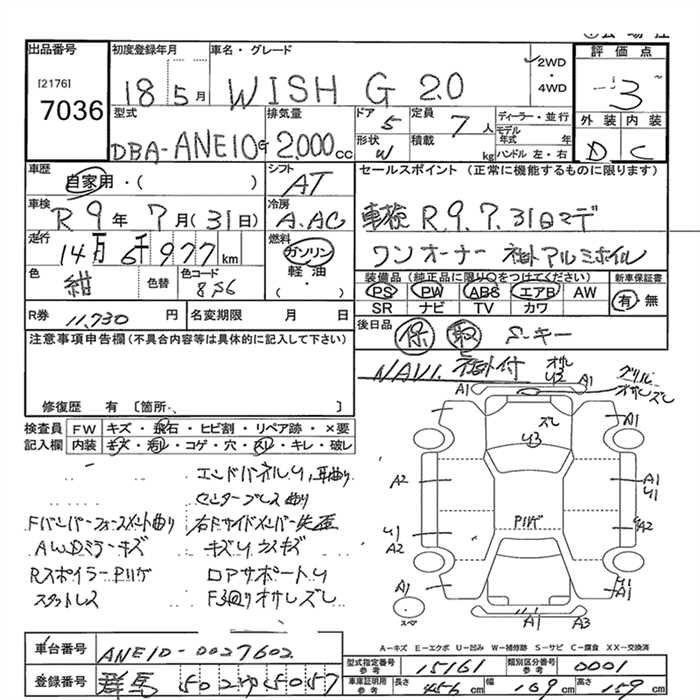 出品番号 初度登録年月 車名・グレード 2WD ・ 4WD 評価点
[2176]
7036
18 5月 WISH G 2.0 3
型式 排気量 ドア 5 定員 7人 ディーラー・並行 外装 内装
DBA-ANE10G 2,000cc 形状 W 積載 kg モデル年式 年 ハンドル 左・右 D C
車歴 自家用・( ) シフト AT セールスポイント (正常に機能するものに限ります)
車検 R 9年 7月(31日) 冷房 A.AC 車検 R.9.7.31日マデ
走行 14万6千977km 燃料 ガソリン・軽・油( ) ワンオーナー 社外アルミホイル
色 紺 色替 色コード 8S6 装備品(純正品に限り○をつけてください) 新車保証書
PS PW ABS エアB AW 有・無
SR ナビ TV カワ
R券 11,730円 名変期限 月 日 後日品 保 取 S-キー
注意事項申告欄(不具合内容等は具体的に記入して下さい)
NAVI. 社外付
修復歴 有 [箇所・ ]
検査員記入欄 FW キズ・飛石・ヒビ割・リペア跡・×要
内装 キズ・汚レ・コゲ・穴・スレ・キレ・破レ
エンドパネルU,曲り
センタープレス曲り
Fバンパーフォースメント曲り 右Fサイドメンバー先歪
AWDミラーキズ キズU ウスキズ
RスポイラーPハゲ ロアサポートU
スタットレス F3回りオサレズレ
オサレ U2 グリルオサレズレ
A1 A1
ズレ
U3
A2 A1 U1
Pハゲ
U1 A2 U2 A2
A1 U1 A1
スペア A1 A3
A-キズ E-エクボ U-凹み W-補修跡 S-サビ C-腐食 XX-交換済
車台番号 ANE10-0027602
型式指定番号 参考 15161 類別区分番号 参考 0001
登録番号 群馬 502 50 57
車庫証明用 参考 長さ 456cm 幅 169cm 高さ 159cm